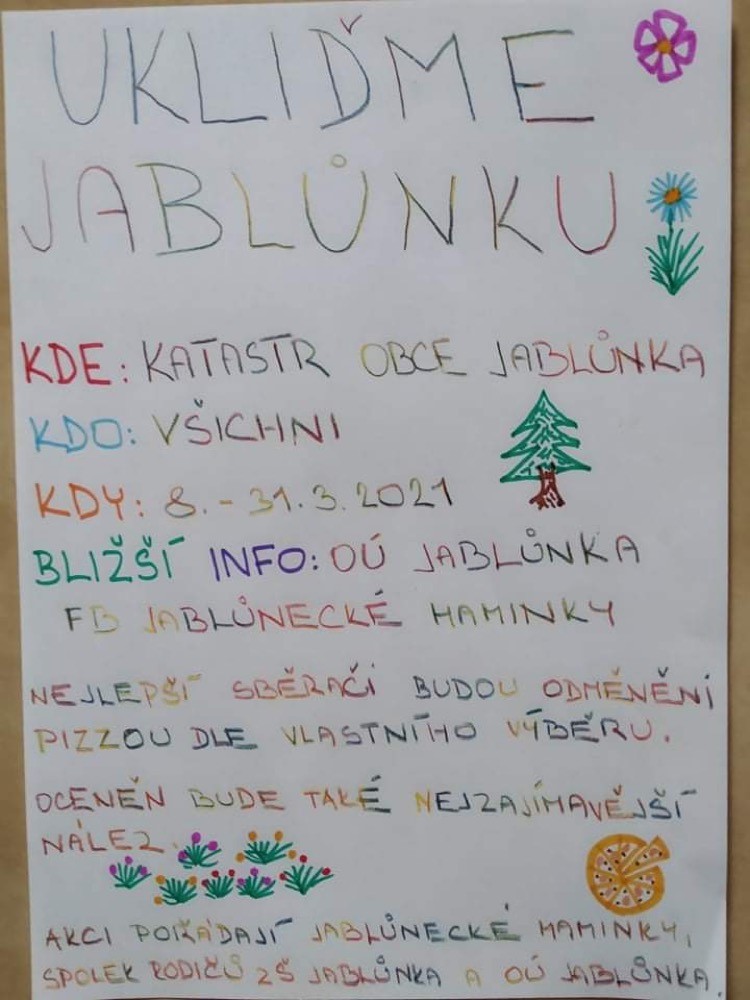 UKLIĎME
JABLŮNKU
KDE: KATASTR OBCE JABLŮNKA
KDO: VŠICHNI
KDY: 8. - 31.3.2021
BLIŽŠÍ INFO: OÚ JABLŮNKA
FB JABLŮNECKÉ MAMINKY
NEJLEPŠÍ SBĚRAČI BUDOU ODMĚNĚNI
PIZZOU DLE VLASTNÍHO VÝBĚRU.
OCENĚN BUDE TAKÉ NEJZAJÍMAVĚJŠÍ
NÁLEZ.
AKCI POŘÁDAJÍ JABLŮNECKÉ MAMINKY,
SPOLEK RODIČŮ ZŠ JABLŮNKA A OÚ JABLŮNKA.